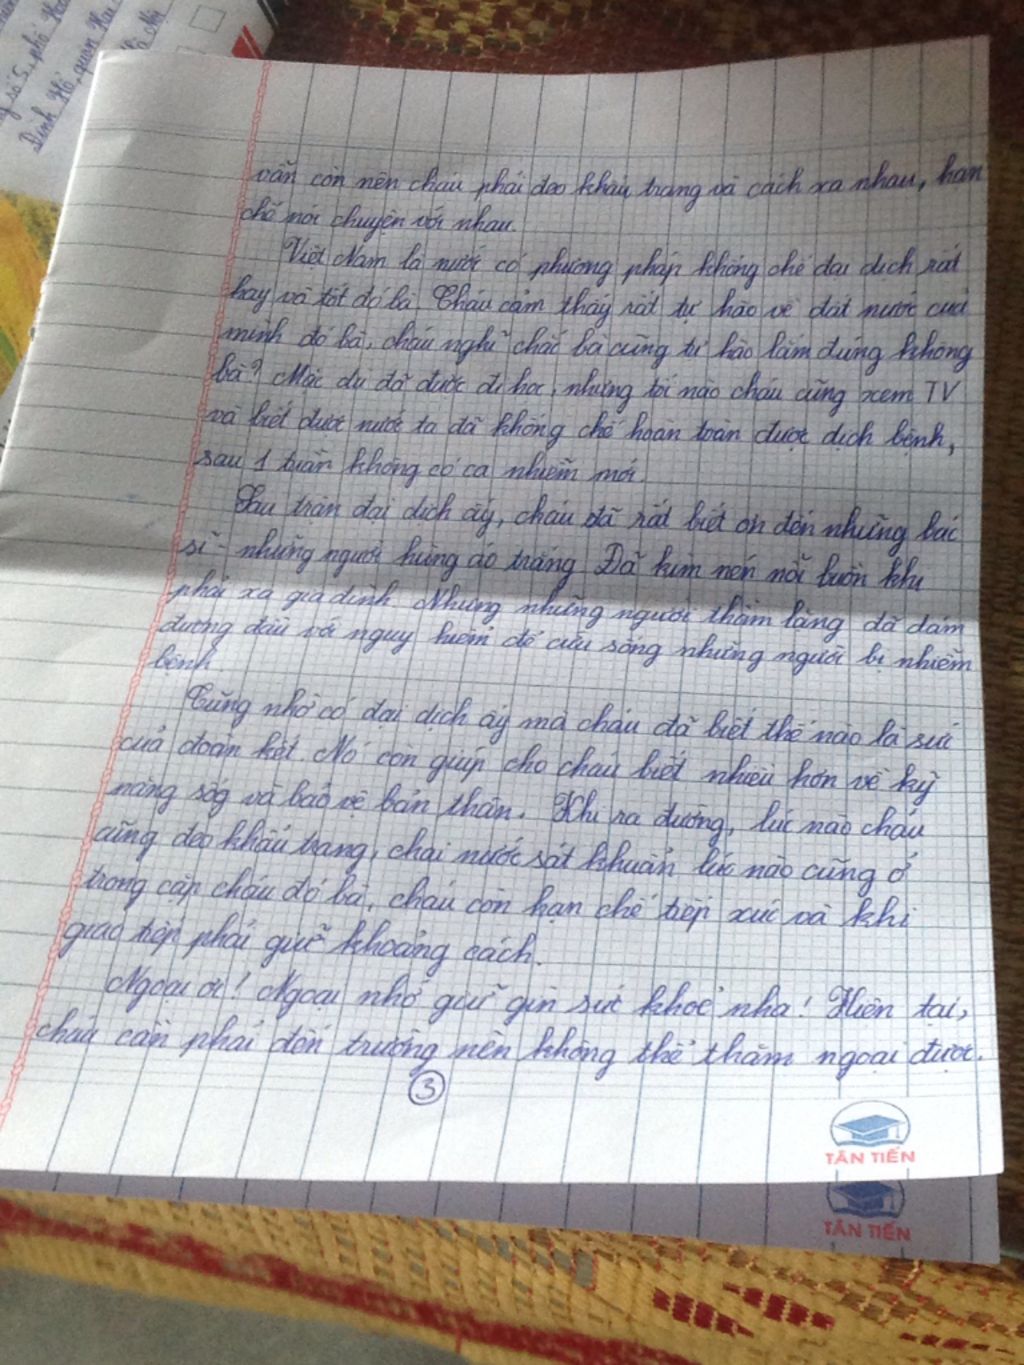 số 5, phố
Đình Hồ, quận Hai
vẫn còn nên cháu phải đeo khẩu trang và cách xa nhau, hạn
chế nói chuyện với nhau.
Việt Nam là nước có phương pháp khống chế đại dịch rất
hay và tốt đó bà. Cháu cảm thấy rất tự hào về đất nước của
mình đó bà, cháu nghĩ chắc bà cũng tự hào lắm đúng không
bà? Mặc dù đã được đi học, nhưng tối nào cháu cũng xem TV
và biết được nước ta đã khống chế hoàn toàn được dịch bệnh,
sau 1 tuần không có ca nhiễm mới.
Sau trận đại dịch ấy, cháu đã rất biết ơn đến những bác
sĩ - những người hùng áo trắng. Đã kìm nén nỗi buồn khi
phải xa gia đình. Nhưng những người thầm lặng đã dám
đương đầu với nguy hiểm để cứu sống những người bị nhiễm
bệnh
Cũng nhờ có đại dịch ấy mà cháu đã biết thế nào là sức
của đoàn kết. Nó còn giúp cho cháu biết nhiều hơn về kỹ
năng sốg và bảo vệ bản thân. Khi ra đường, lúc nào cháu
cũng đeo khẩu trang, chai nước sát khuẩn lúc nào cũng ở
trong cặp cháu đó bà, cháu còn hạn chế tiếp xúc và khi
giao tiếp phải giữ khoảng cách.
Ngoại ơi! Ngoại nhớ giữ gìn sức khoẻ nha! Hiện tại,
cháu cần phải đến trường nên không thể thăm ngoại được.
3
TÂN TIẾN
TÂN TIẾN